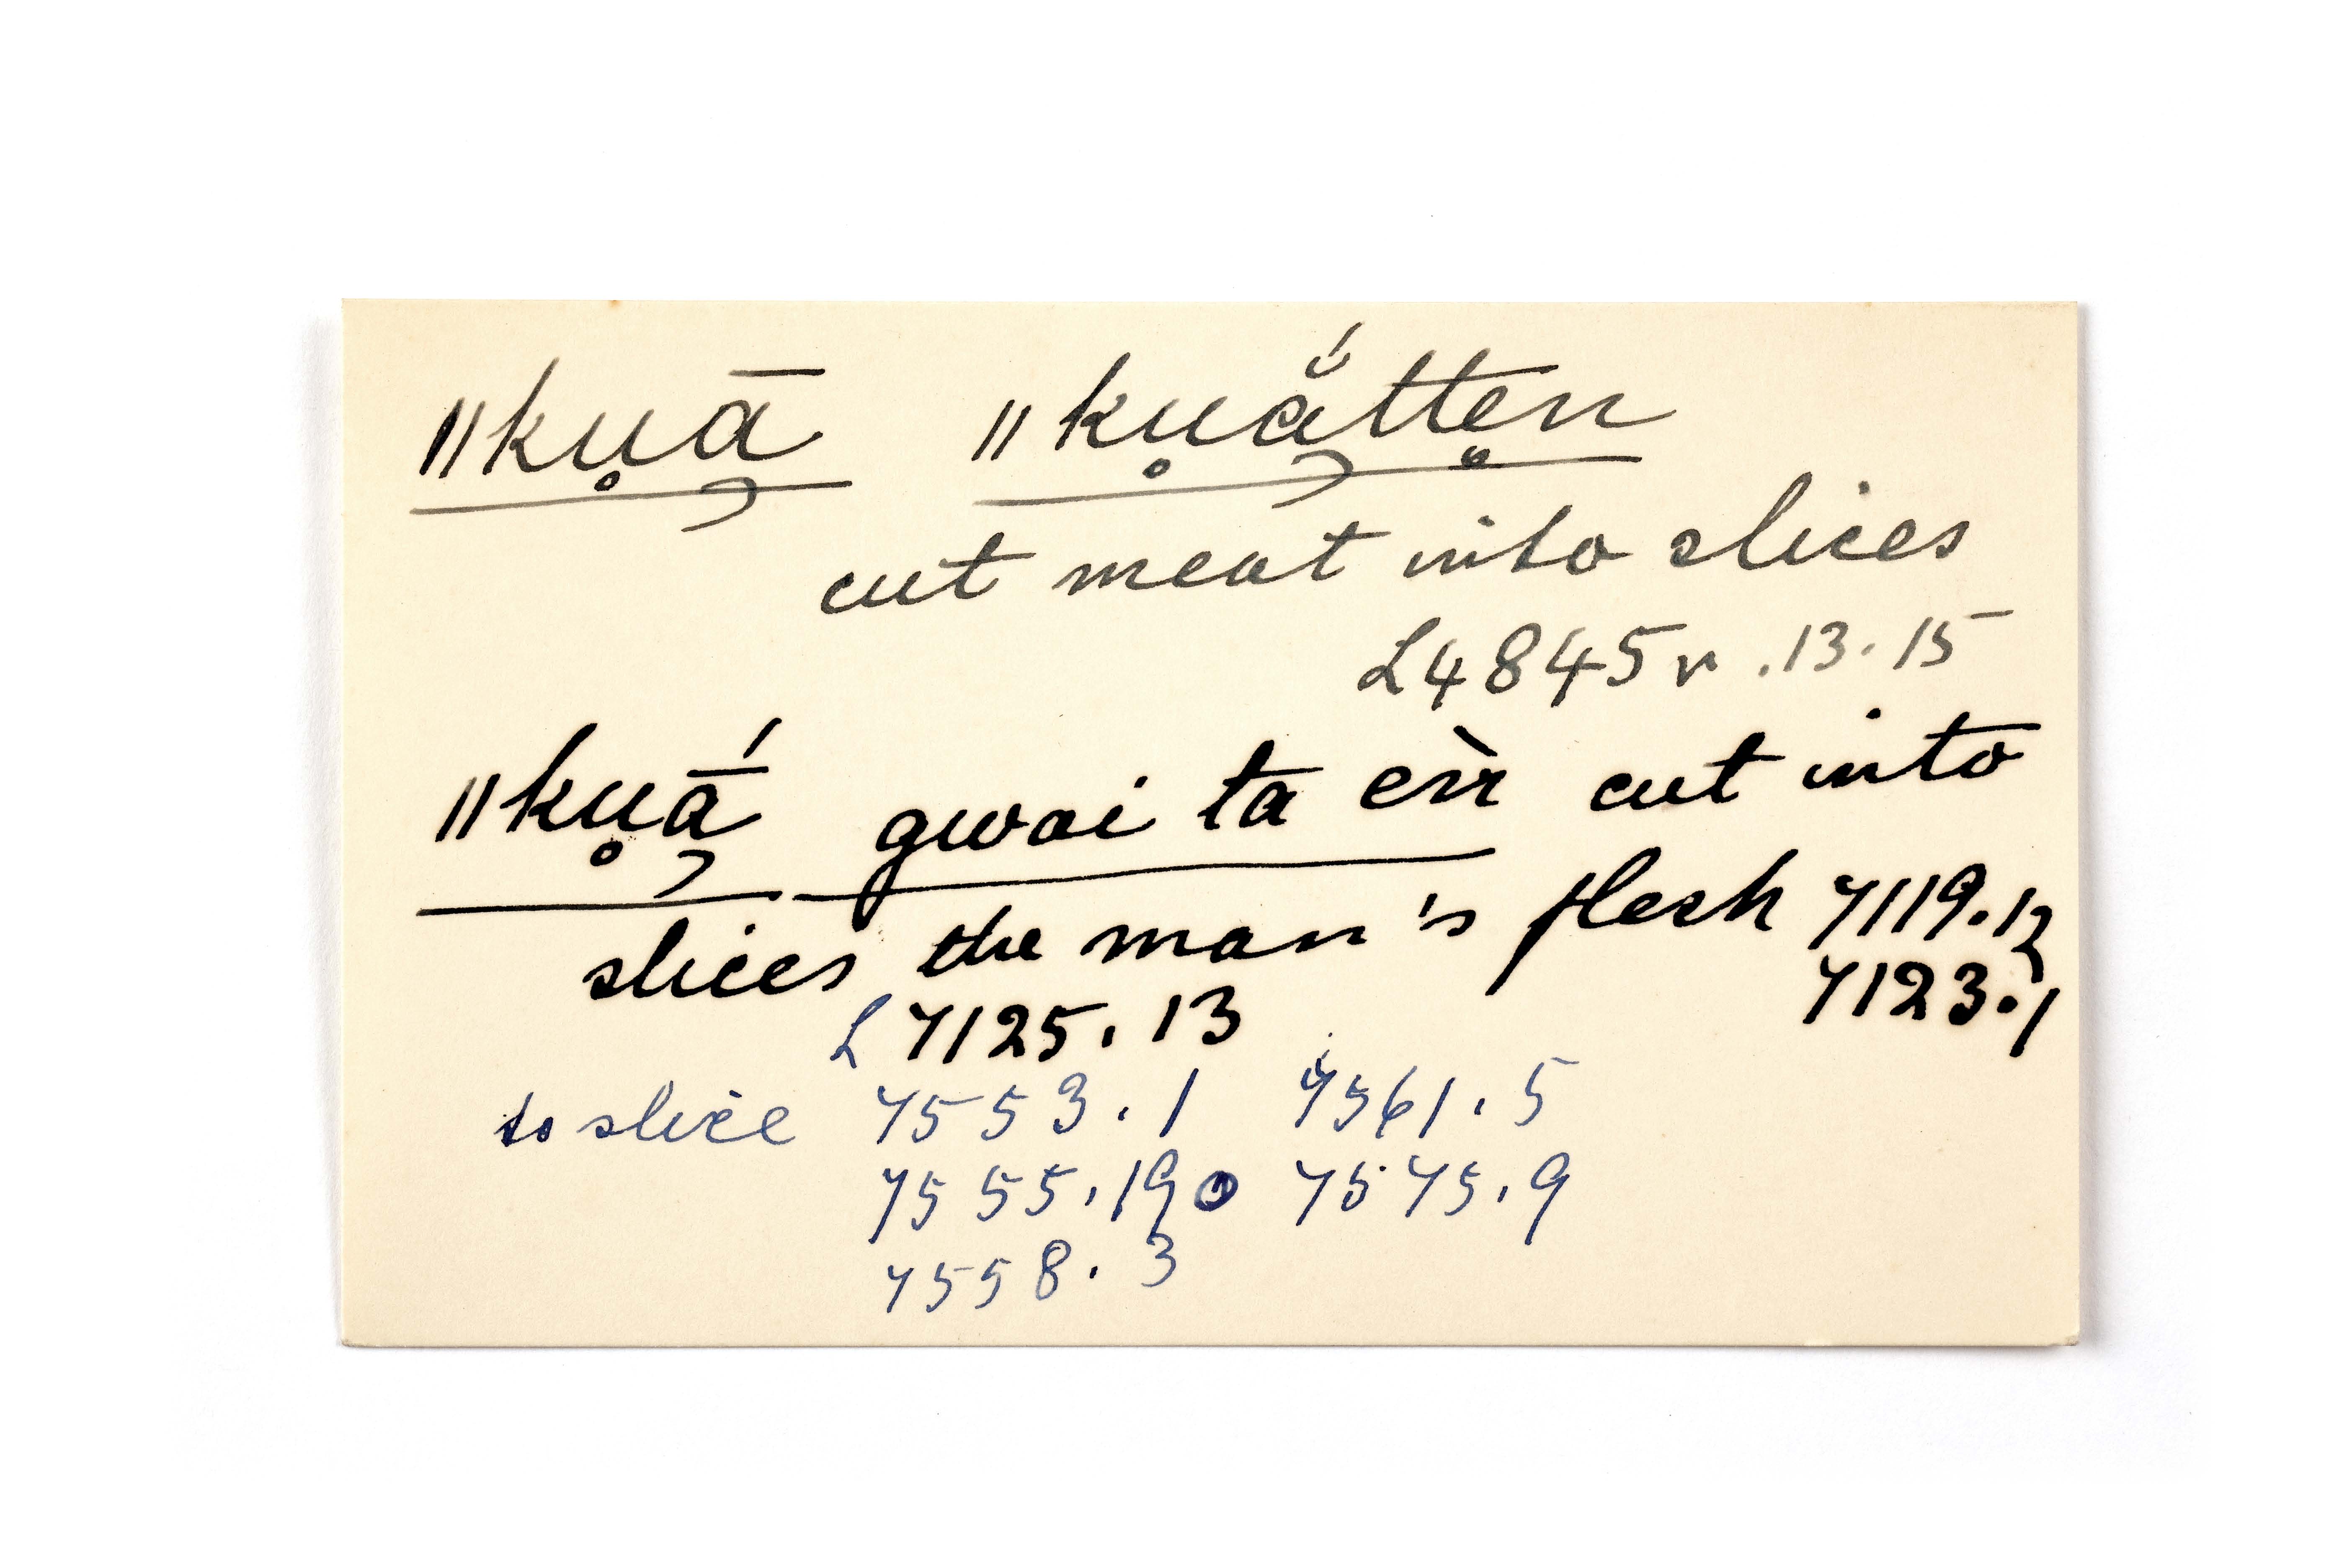 ǁku̥ā̡ ǁku̥ā̡̆́tte̥n
cut meat into slices
L4845v.13.15
ǁku̥ā̡́ gwai ta eǹ cut into
slices the man's flesh 7119.12
7123.1
L 7125.13
to slice 7553.1 7561.5
7555.19 7575.9
7558.3